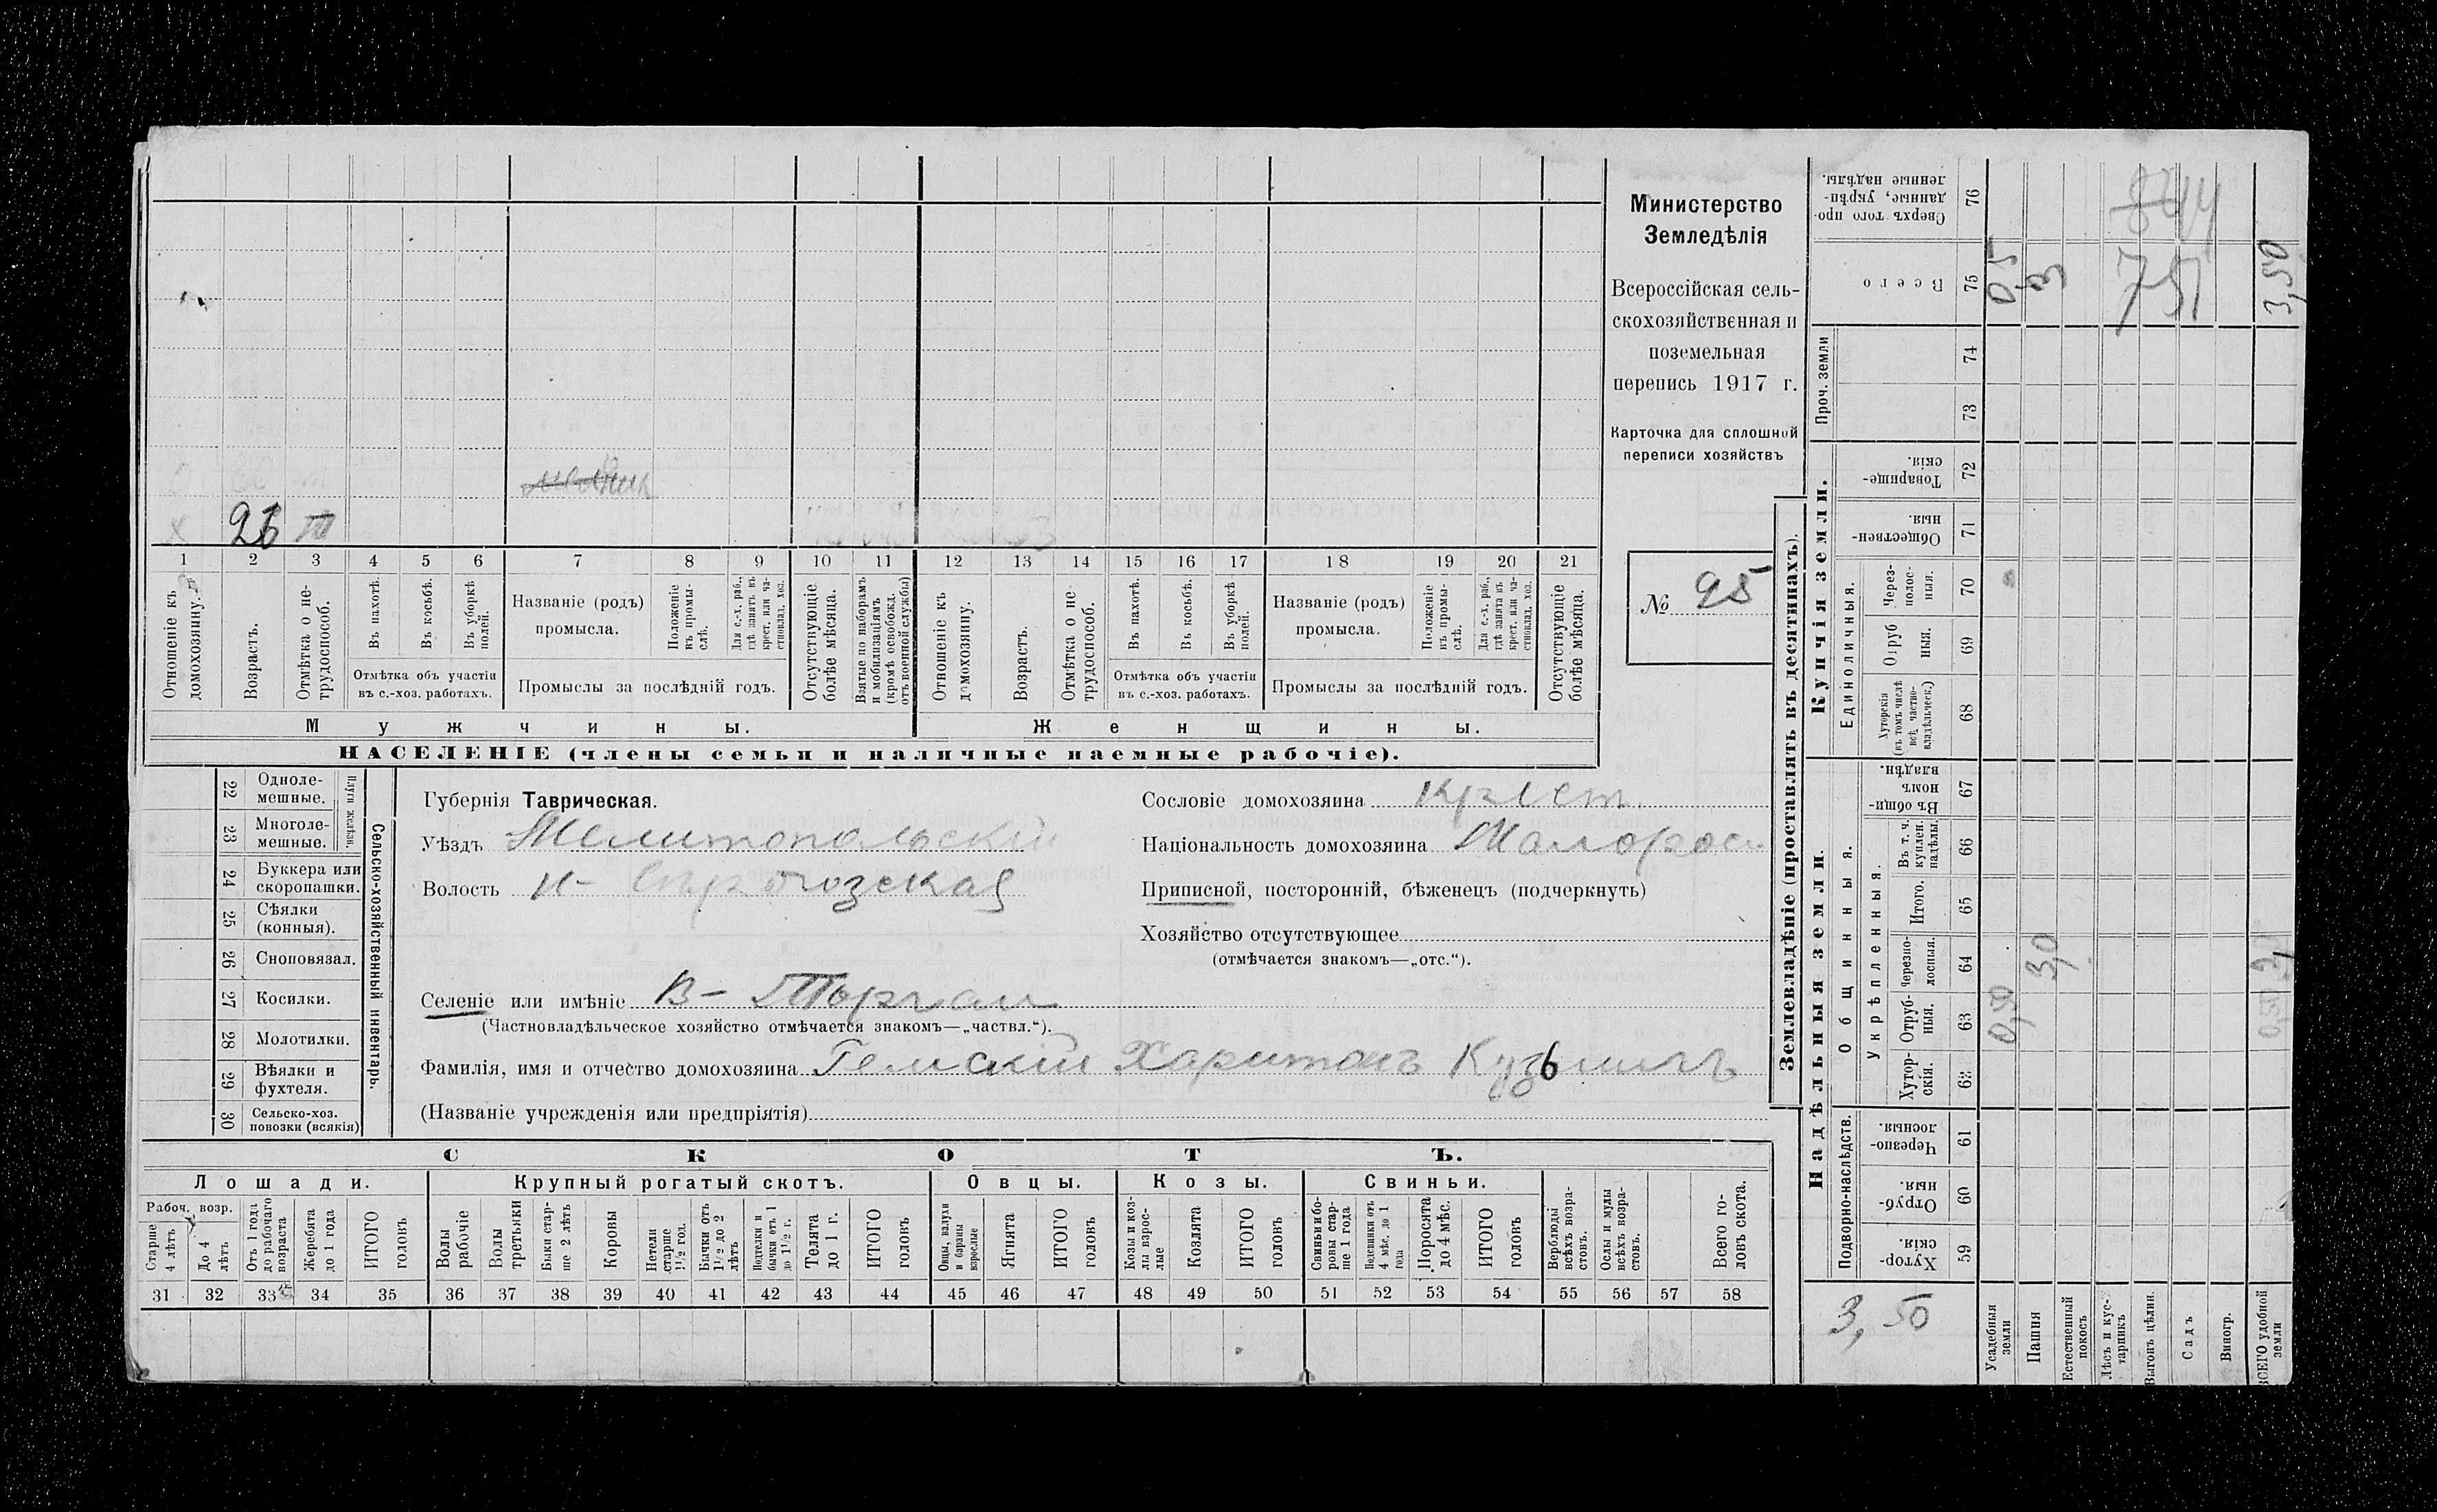 Министерство
Земледѣлія
Всероссійская сель-
скохозяйственная и
поземельная
перепись 1917 г.
Карточка для сплошной
переписи хозяйствъ
№ 95
26 III
1 2 3 4 5 6 7 8 9 10 11 12 13 14 15 16 17 18 19 20 21
Отношеніе къ домохозяину.
Возрастъ.
Отмѣтка о не-трудоспособ.
Въ пахотѣ.
Въ косьбѣ.
Въ уборкѣ полей.
Отмѣтка объ участіи
въ с.-хоз. работахъ.
Названіе (родъ)
промысла.
Положеніе въ промы-слѣ.
Для с.-х. раб., гдѣ занятъ въ крест. или ча-стновлад. хоз.
Промыслы за послѣдній годъ.
Отсутствующіе болѣе мѣсяца.
Взятые по наборамъ и мобилизаціямъ (кромѣ освобожд. отъ военной службы)
Отношеніе къ домохозяину.
Возрастъ.
Отмѣтка о не трудоспособ.
Въ пахотѣ.
Въ косьбѣ.
Въ уборкѣ полей.
Отмѣтка объ участіи
въ с.-хоз. работахъ.
Названіе (родъ)
промысла.
Положеніе въ промы-слѣ.
Для с.-х. раб., гдѣ занята въ крест. или ча-стновлад. хоз.
Промыслы за послѣдній годъ.
Отсутствующіе болѣе мѣсяца.
Мужчины.
Женщины.
НАСЕЛЕНІЕ (члены семьи и наличные наемные рабочіе).
Сельско-хозяйственный инвентарь.
Плуги желѣзн.
22 Одноле-мешные.
23 Многоле-мешные.
24 Буккера или скоропашки.
25 Сѣялки (конныя).
26 Сноповязал.
27 Косилки.
28 Молотилки.
29 Вѣялки и фухтеля.
30 Сельско-хоз. повозки (всякія)
Губернія Таврическая.
Уѣздъ Мелитопольскій
Волость Н-
Селеніе или имѣніе В- Торгаи
(Частновладѣльческое хозяйство отмѣчается знакомъ—„частвл.“).
Фамилія, имя и отчество домохозяина Харитонъ Кузьмичъ
(Названіе учрежденія или предпріятія)
Сословіе домохозяина крест.
Національность домохозяина Малорос
Приписной, посторонній, бѣженецъ (подчеркнуть)
Хозяйство отсутствующее
(отмѣчается знакомъ—„отс.“).
СКОТЪ.
Лошади. Крупный рогатый скотъ. Овцы. Козы. Свиньи.
Рабоч. возр.
Старше 4 лѣтъ
До 4 лѣтъ
Отъ 1 года до рабочаго возраста
Жеребята до 1 года
ИТОГО головъ
Волы рабочіе
Волы третьяки
Быки стар-ше 2 лѣтъ
Коровы
Нетели старше 1½ год.
Бычки отъ 1½ до 2 лѣтъ
Подтелки и бычки отъ 1 до 1½ г.
Телята до 1 г.
ИТОГО головъ
Овцы, валухи и бараны взрослые
Ягнята
ИТОГО головъ
Козы и коз-лы взрос-лые
Козлята
ИТОГО головъ
Свиньи и бо-ровы стар-ше 1 года
Подсвинки отъ 4 мѣс. до 1 года
Поросята до 4 мѣс.
ИТОГО головъ
Верблюды всѣхъ возра-стовъ.
Ослы и мулы всѣхъ возра-стовъ.
Всего го-ловъ скота.
31 32 33 34 35 36 37 38 39 40 41 42 43 44 45 46 47 48 49 50 51 52 53 54 55 56 57 58
Землевладѣніе (проставлять въ десятинахъ).
Надѣльныя земли.
Подворно-наслѣдств.
59 Хутор-скія.
60 Отруб-ныя.
61 Черезпо-лосныя.
Общинныя.
Укрѣпленныя.
62 Хутор-скія.
63 Отруб-ныя. 0,50
64 Черезпо-лосныя. 3,0
65 Итого.
66 Въ т. ч. куплен. надѣлы.
67 Въ общи-номъ владѣн.
Купчія земли.
Единоличныя.
68 Хуторскія (въ томъ числѣ всѣ частно-владѣльческ.)
69 Отруб ныя.
70 Через-полос-ныя.
71 Обществен-ныя.
72 Товарище-скія.
Проч. земли
73
74
75 Всего 0,5 3 3,50
76 Сверхъ того про-данные, укрѣп-ленные надѣлы.
844
751
3,50
Усадебныя земли
Пашня
Естественный покосъ
Лѣсъ и кус-тарникъ
Выгонъ цѣлин.
Садъ
Виногр.
ВСЕГО удобной земли